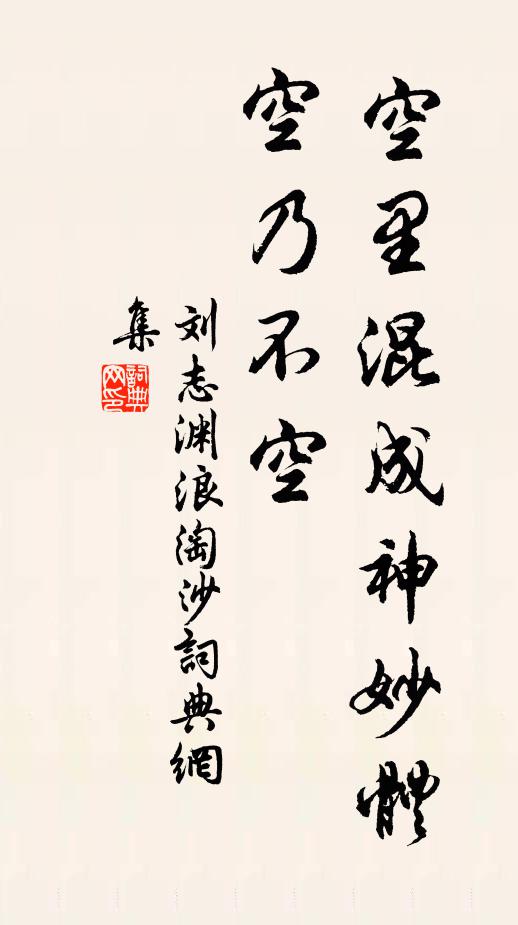 空里混成神妙體
空乃不空
刘志渊浪淘沙詞典網
集
詞典
网印